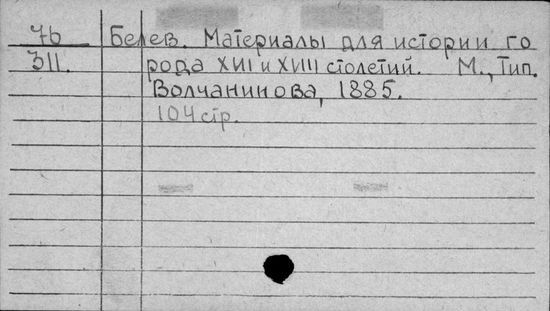 76 Белев. Материалы для истории го
311. рода XVII и XVIII столетий. М., Тип.
Волчанинова, 1885.
104 стр.